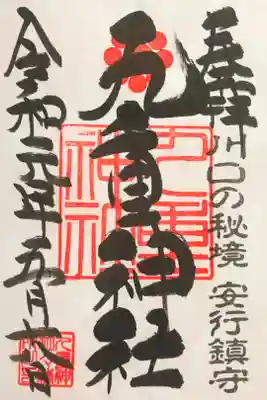 奉拝
川口の秘境 安行鎮守
九重神社
九重神社
令和元年五月六日